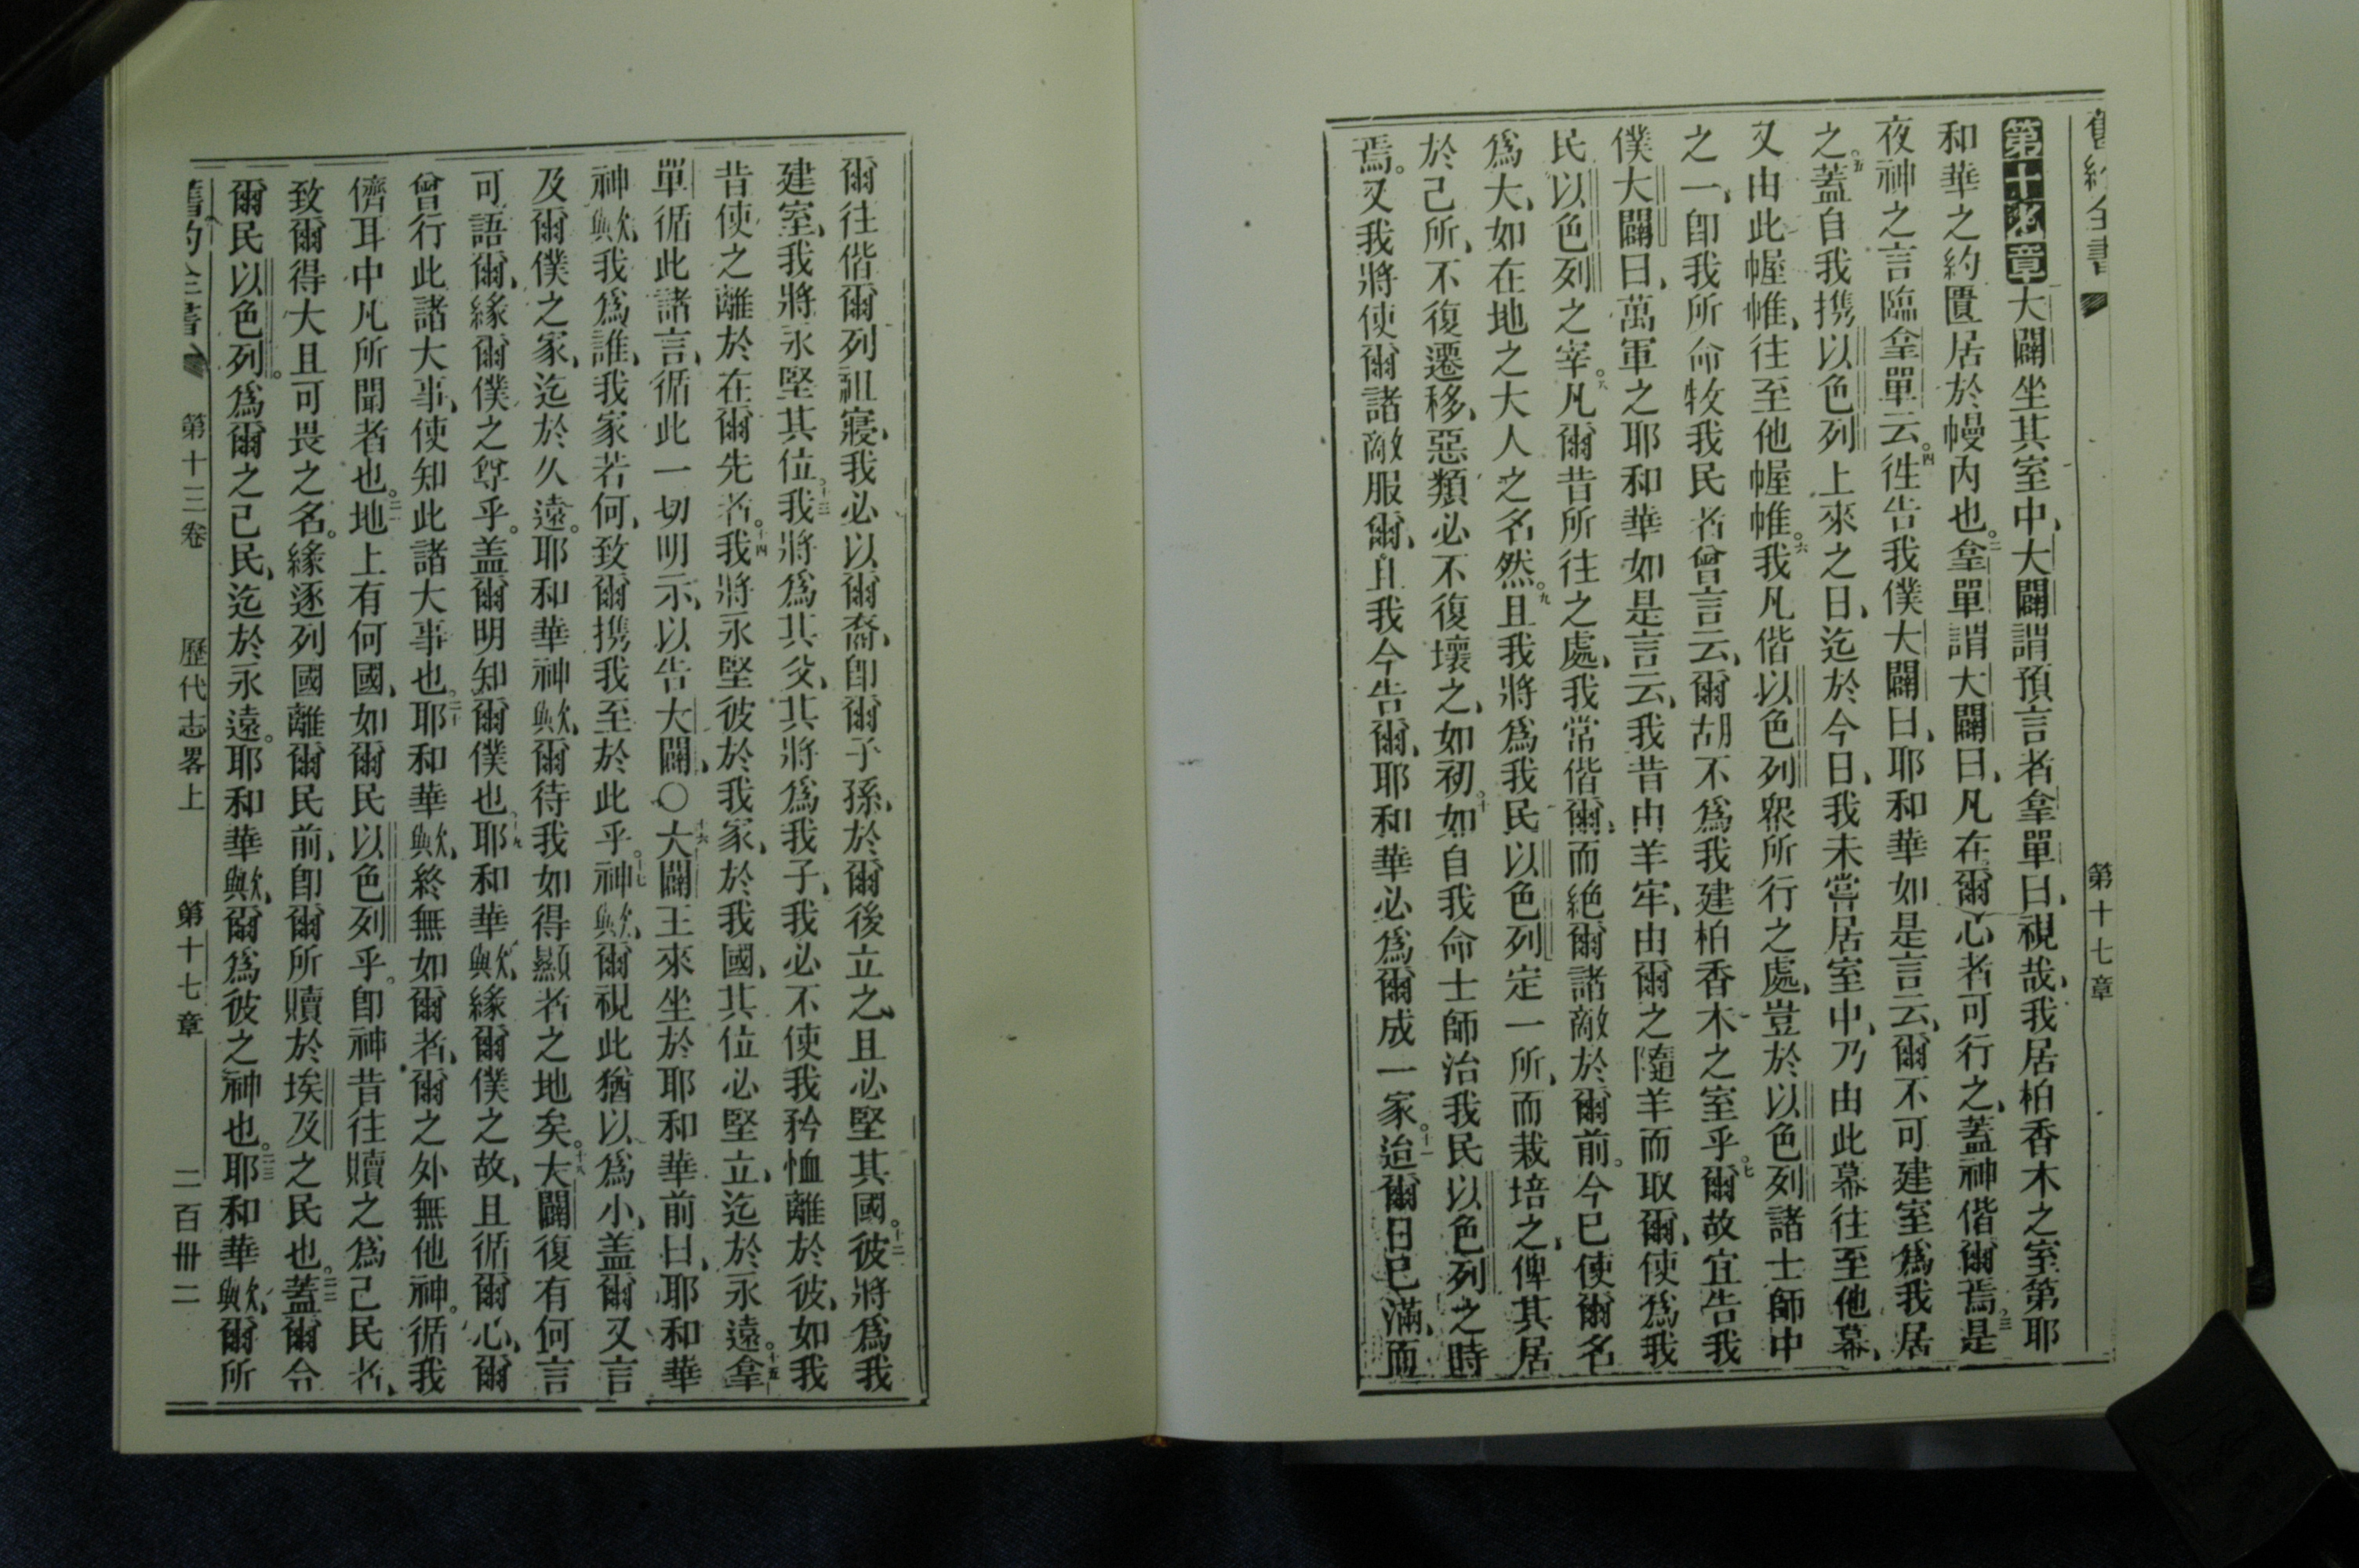 舊約全書 第十七章
第十七章大闢坐其室中、大闢謂預言者拿單曰、視哉、我居柏香木之室第耶
和華之約匱居於幔內也。二拿單謂大闢曰、凡在爾心者可行之、蓋神偕爾焉。三是
夜神之言臨拿單云。四徃告我僕大闢曰、耶和華如是言云、爾不可建室爲我居
之。五蓋自我携以色列上來之日、迄於今日、我未嘗居室中、乃由此幕往至他幕、
又由此幄帷、往至他幄帷。六我凡偕以色列衆所行之處、豈於以色列諸士師中
之一、卽我所命牧我民者曾言云、爾胡不爲我建柏香木之室乎。七爾故宜告我
僕大闢曰、萬軍之耶和華如是言云、我昔由羊牢、由爾之隨羊而取爾、使爲我
民以色列之宰。八凡爾昔所往之處、我常偕爾、而絕爾諸敵於爾前。今已使爾名
爲大、如在地之大人之名然。九且我將爲我民以色列定一所、而栽培之、俾其居
於己所、不復遷移、惡類必不復壞之、如初。十如自我命士師治我民以色列之時
焉。又我將使爾諸敵服爾、且我今告爾、耶和華必爲爾成一家。十一迨爾日已滿、而
爾往偕爾列祖寢、我必以爾裔、卽爾子孫、於爾後立之、且必堅其國。十二彼將爲我
建室、我將永堅其位。十三我將爲其父、其將爲我子、我必不使我矜恤離於彼、如我
昔使之離於在爾先者。十四我將永堅彼於我家、於我國、其位必堅立、迄於永遠。十五拿
單循此諸言、循此一切明示、以告大闢、○十六大闢王來坐於耶和華前曰、耶和華
神歟、我爲誰、我家若何、致爾携我至於此乎。十七神歟、爾視此猶以爲小、蓋爾又言
及爾僕之家、迄於久遠。耶和華神歟、爾待我如得顯者之地矣。十八大闢復有何言
可語爾、緣爾僕之尊乎。盖爾明知爾僕也。十九耶和華歟、緣爾僕之故、且循爾心、爾
曾行此諸大事、使知此諸大事也。二十耶和華歟、終無如爾者、爾之外無他神。循我
儕耳中凡所聞者也。二一地上有何國、如爾民以色列乎。卽神昔往贖之爲己民者、
致爾得大且可畏之名。緣逐列國離爾民前、卽爾所贖於埃及之民也。二二蓋爾令
爾民以色列。爲爾之己民、迄於永遠。耶和華歟、爾爲彼之神也。二三耶和華歟、爾所
舊約全書 第十三卷 歷代志畧上 第十七章 二百卅二